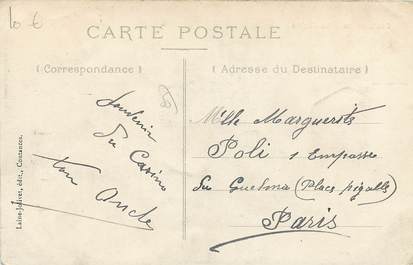 10 €
CARTE POSTALE
(Correspondance)
(Adresse du Destinataire)
Souvenir
du Casino
ton Oncle
Mlle Marguerite
Poli 1 Impasse
du Guelma (Place pigalle)
Paris
édit., Coutances.